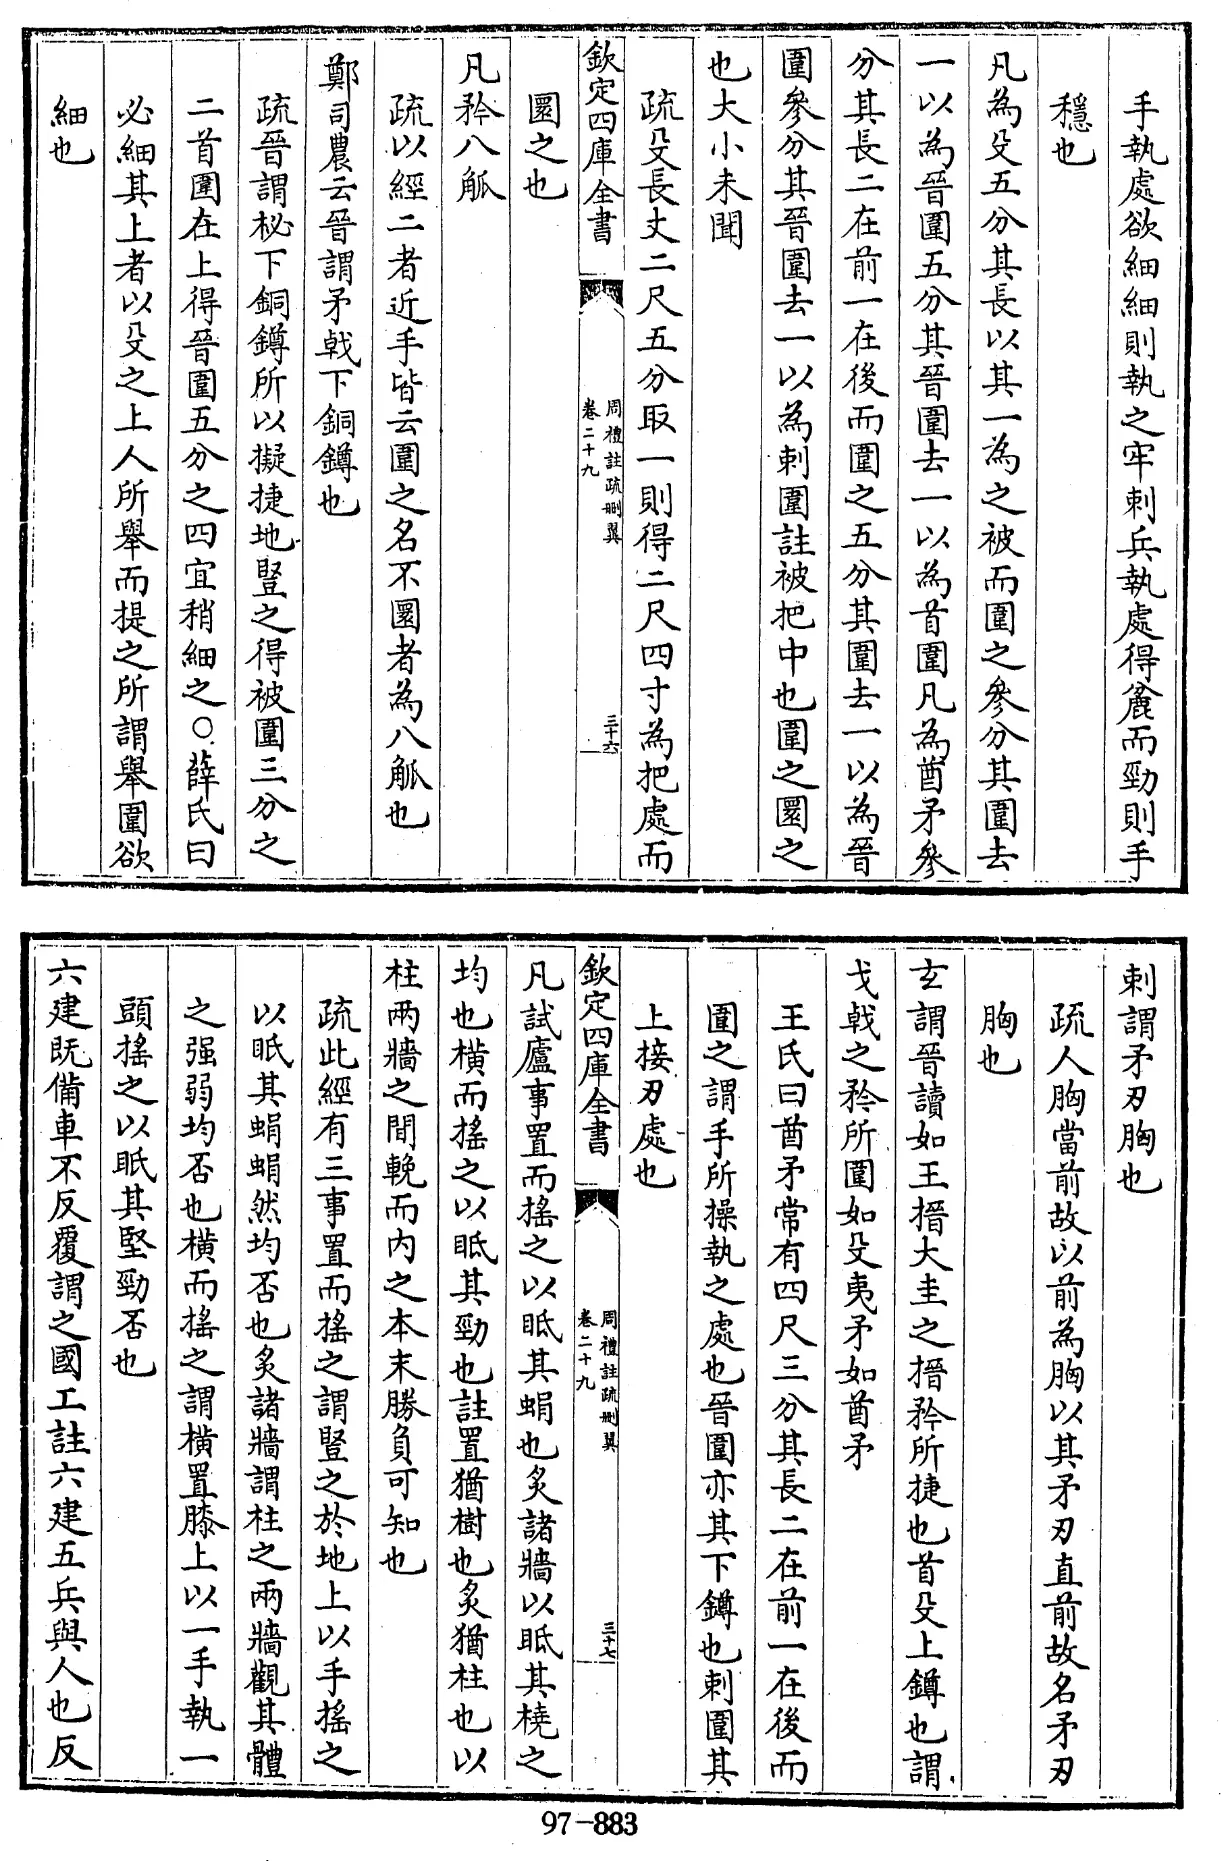 手執處欲細細則執之牢刺兵執處得麄而勁則手
穩也
凡為殳五分其長以其一為之被而圍之參分其圍去
一以為晉圍五分其晉圍去一以為首圍凡為酋矛參
分其長二在前一在後而圍之五分其圍去一以為晉
圍參分其晉圍去一以為刺圍註被把中也圍之圜之
也大小未聞
疏殳長丈二尺五分取一則得二尺四寸為把處而
欽定四庫全書
周禮註疏刪翼
卷二十九
三十六
圜之也
凡矜八觚
疏以經二者近手皆云圍之名不圜者為八觚也
鄭司農云晉謂矛戟下銅鐏也
疏晉謂柲下銅鐏所以擬捷地豎之得被圍三分之
二首圍在上得晉圍五分之四宜稍細之○薛氏曰
必細其上者以殳之上人所舉而提之所謂舉圍欲
細也
刺謂矛刃胸也
疏人胸當前故以前為胸以其矛刃直前故名矛刃
胸也
玄謂晉讀如王搢大圭之搢矜所捷也首殳上鐏也謂
戈戟之矜所圍如殳夷矛如酋矛
王氏曰酋矛常有四尺三分其長二在前一在後而
圍之謂手所操執之處也晉圍亦其下鐏也刺圍其
上接刃處也
欽定四庫全書
周禮註疏刪翼
卷二十九
三十七
凡試廬事置而搖之以眡其蜎也炙諸牆以眡其橈之
均也橫而搖之以眡其勁也註置猶樹也炙猶柱也以
柱兩牆之間輓而內之本末勝負可知也
疏此經有三事置而搖之謂豎之於地上以手搖之
以眂其蜎蜎然均否也炙諸牆謂柱之兩牆觀其體
之强弱均否也橫而搖之謂橫置膝上以一手執一
頭搖之以眂其堅勁否也
六建既備車不反覆謂之國工註六建五兵與人也反
97-883